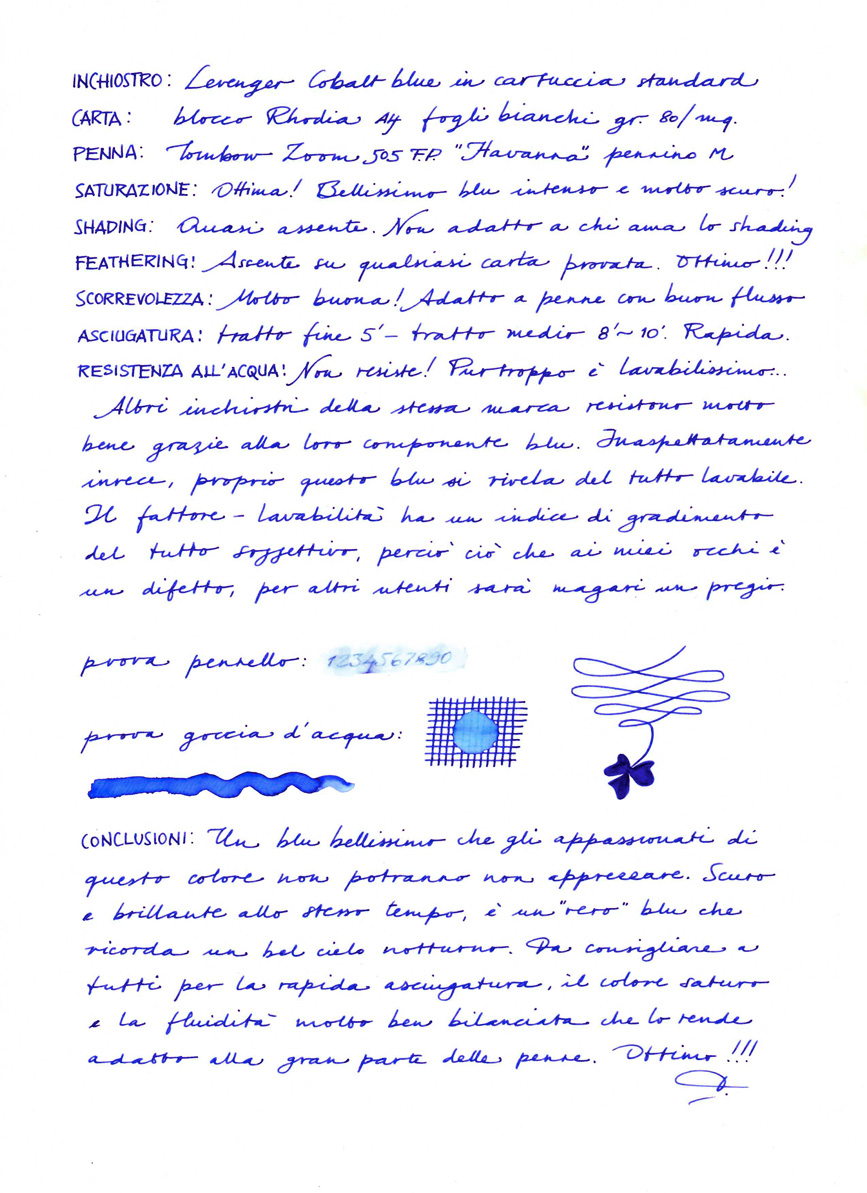 INCHIOSTRO: Levenger Cobalt blue in cartuccia standard
CARTA: blocco Rhodia A4 fogli bianchi gr. 80/mq.
PENNA: Tombow Zoom 505 F.P. "Havanna" pennino M
SATURAZIONE: Ottima! Bellissimo blu intenso e molto scuro!
SHADING: Quasi assente. Non adatto a chi ama lo shading
FEATHERING: Assente su qualsiasi carta provata. Ottimo!!!
SCORREVOLEZZA: Molto buona! Adatto a penne con buon flusso
ASCIUGATURA: tratto fine 5' – tratto medio 8'~10'. Rapida.
RESISTENZA ALL'ACQUA: Non resiste! Purtroppo è lavabilissimo...
Altri inchiostri della stessa marca resistono molto
bene grazie alla loro componente blu. Inaspettatamente
invece, proprio questo blu si rivela del tutto lavabile.
Il fattore – lavabilità ha un indice di gradimento
del tutto soggettivo, perciò ciò che ai miei occhi è
un difetto, per altri utenti sarà magari un pregio.
prova pennello: 1234567890
prova goccia d'acqua:
CONCLUSIONI: Un blu bellissimo che gli appassionati di
questo colore non potranno non apprezzare. Scuro
e brillante allo stesso tempo, è un "vero" blu che
ricorda un bel cielo notturno. Da consigliare a
tutti per la rapida asciugatura, il colore saturo
e la fluidità molto ben bilanciata che lo rende
adatto alla gran parte delle penne. Ottimo!!!